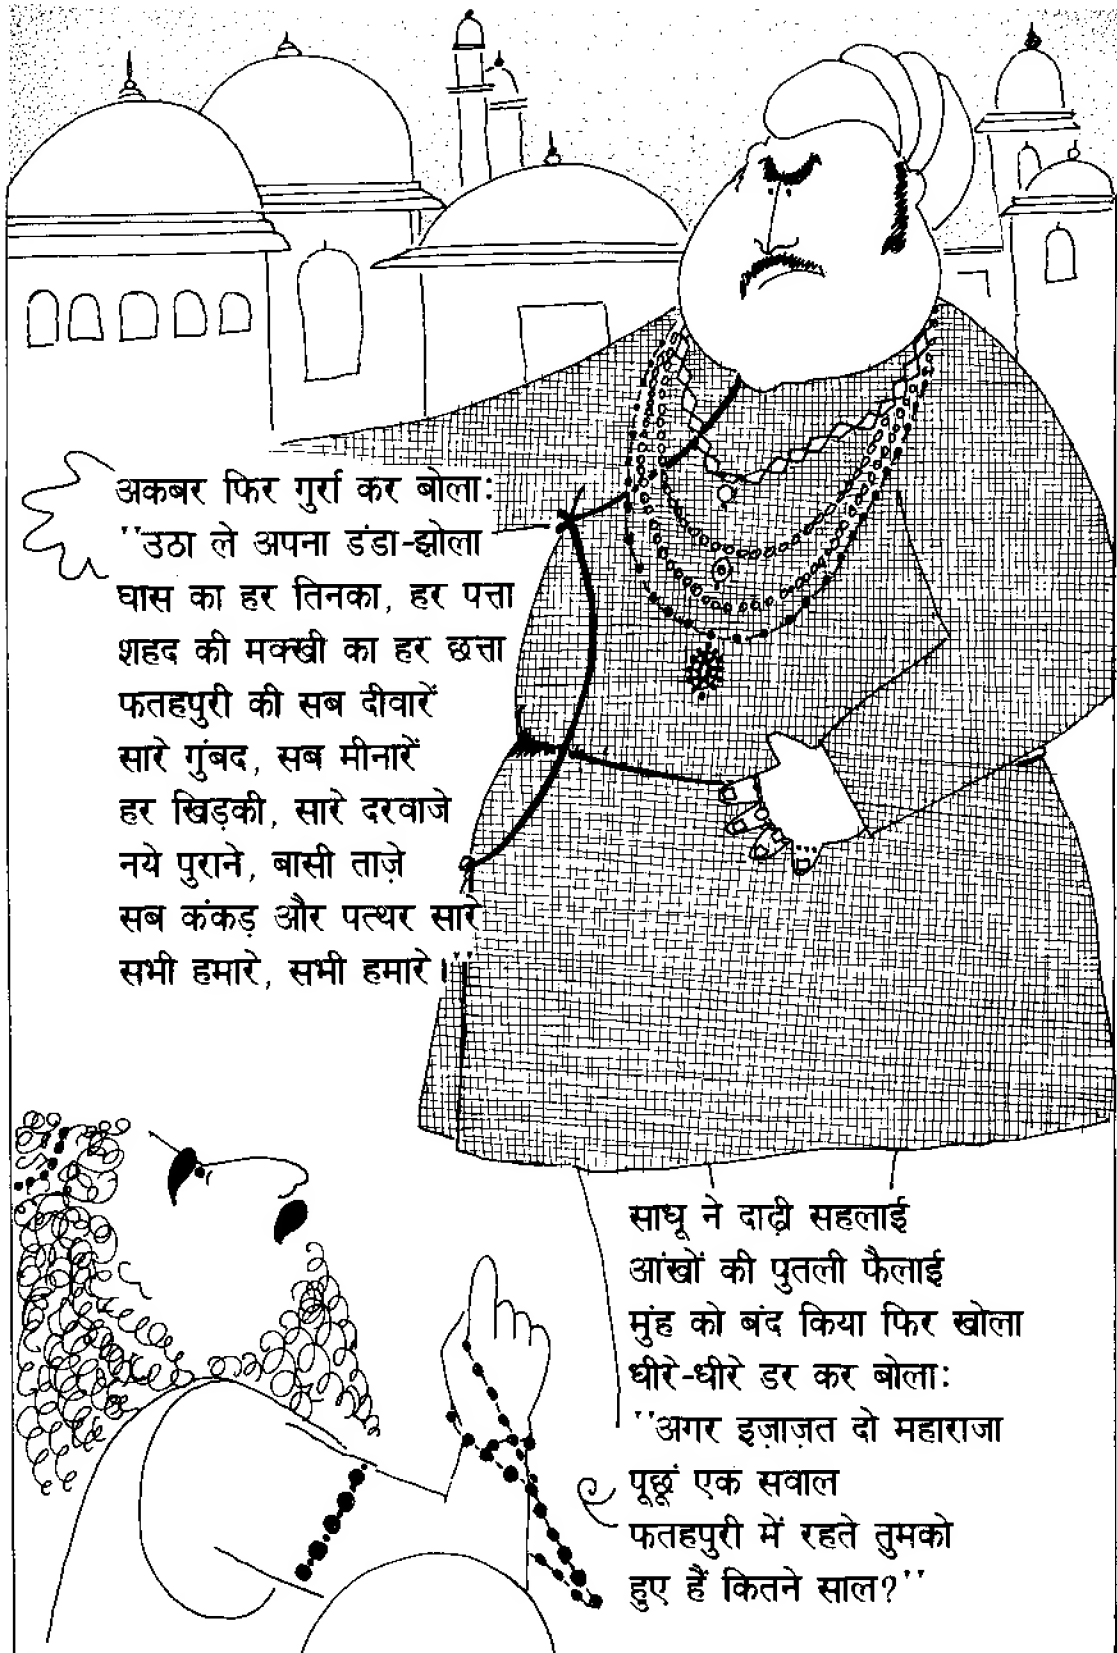 अकबर फिर गुर्रा कर बोला:
"उठा ले अपना डंडा-झोला
घास का हर तिनका, हर पत्ता
शहद की मक्खी का हर छत्ता
फतहपुरी की सब दीवारें
सारे गुंबद, सब मीनारें
हर खिड़की, सारे दरवाजे
नये पुराने, बासी ताज़े
सब कंकड़ और पत्थर सारे
सभी हमारे, सभी हमारे।"
साधू ने दाढ़ी सहलाई
आंखों की पुतली फैलाई
मुंह को बंद किया फिर खोला
धीरे-धीरे डर कर बोला:
"अगर इज़ाज़त दो महाराजा
पूछूं एक सवाल
फतहपुरी में रहते तुमको
हुए हैं कितने साल?"